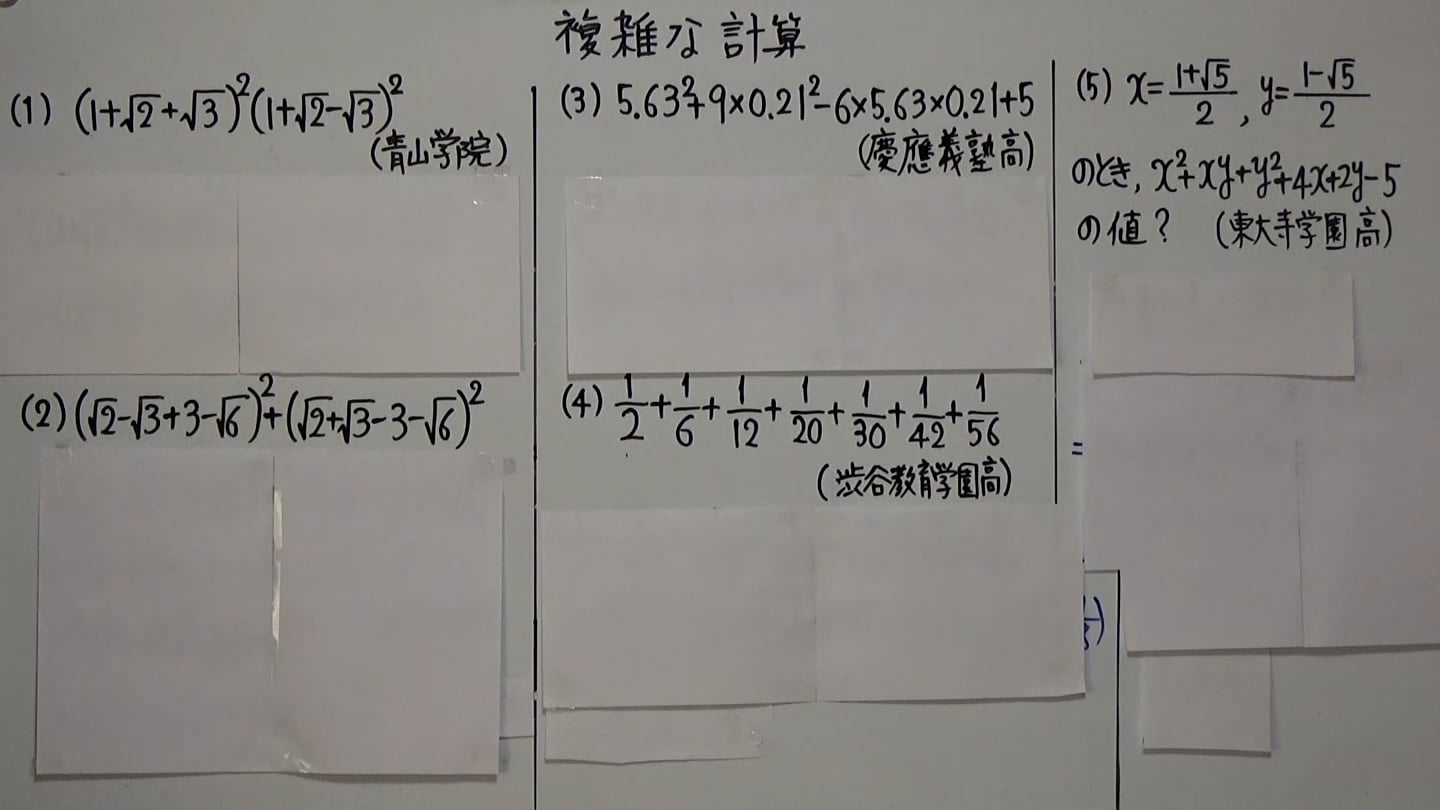 複雑な計算
(1) (1+√2+√3)²(1+√2-√3)²
(青山学院)
(2) (√2-√3+3-√6)²+(√2+√3-3-√6)²
(3) 5.63²+9×0.21²-6×5.63×0.21+5
(慶應義塾高)
(4) 1/2+1/6+1/12+1/20+1/30+1/42+1/56
(渋谷教育学園高)
(5) x=(1+√5)/2, y=(1-√5)/2
のとき, x²+xy+y²+4x+2y-5
の値? (東大寺学園高)
=